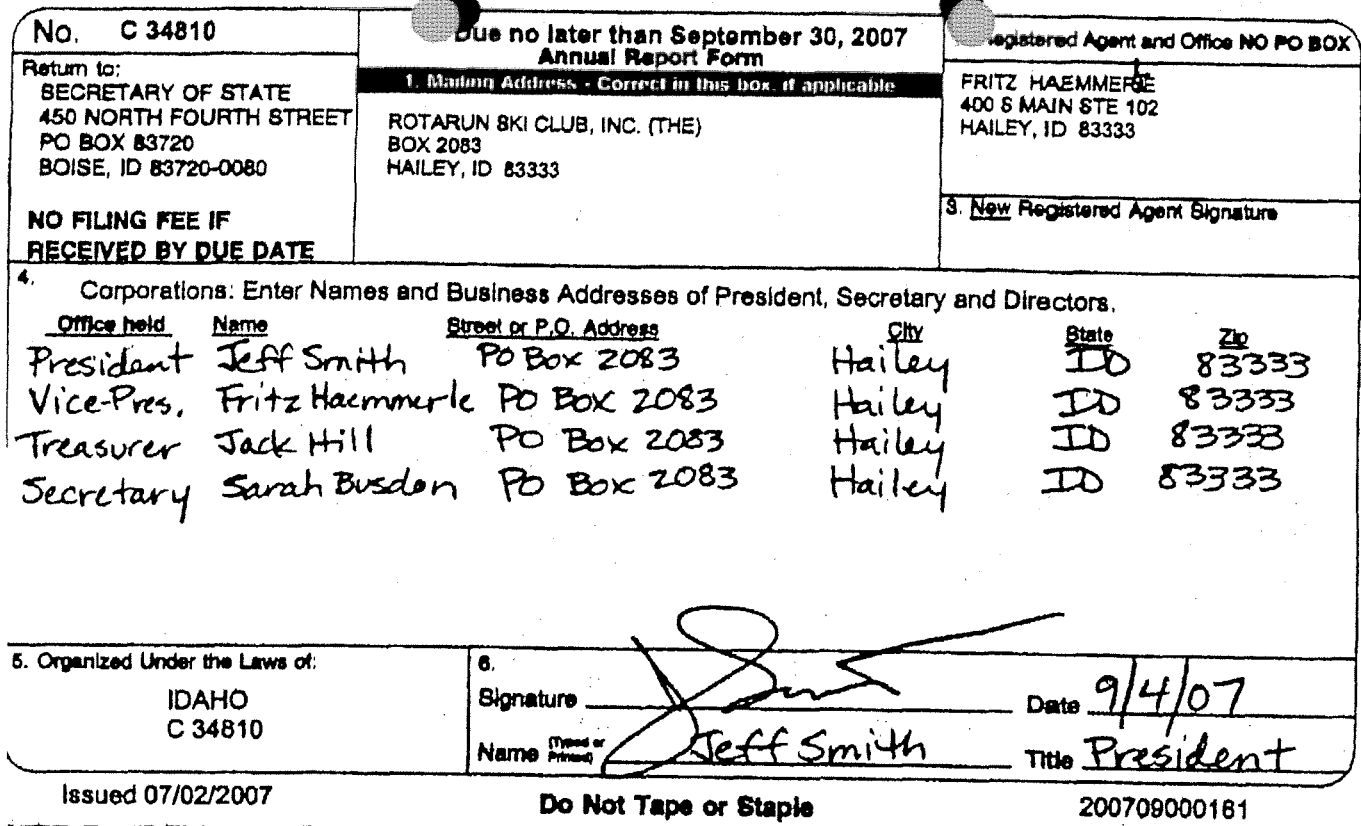 No. C 34810
Return to:
SECRETARY OF STATE
450 NORTH FOURTH STREET
PO BOX 83720
BOISE, ID 83720-0080
NO FILING FEE IF
RECEIVED BY DUE DATE
Due no later than September 30, 2007
Annual Report Form
1. Mailing Address - Correct in this box, if applicable
ROTARUN SKI CLUB, INC. (THE)
BOX 2083
HAILEY, ID 83333
Registered Agent and Office NO PO BOX
FRITZ HAEMMERLE
400 S MAIN STE 102
HAILEY, ID 83333
3. New Registered Agent Signature
4. Corporations: Enter Names and Business Addresses of President, Secretary and Directors.
Office held Name Street or P.O. Address City State Zip
President Jeff Smith PO Box 2083 Hailey ID 83333
Vice-Pres. Fritz Haemmerle PO Box 2083 Hailey ID 83333
Treasurer Jack Hill PO Box 2083 Hailey ID 83333
Secretary Sarah Busdon PO Box 2083 Hailey ID 83333
5. Organized Under the Laws of:
IDAHO
C 34810
6.
Signature Date 9/4/07
Name (Typed or Printed) Jeff Smith Title President
Issued 07/02/2007 Do Not Tape or Staple 200709000161